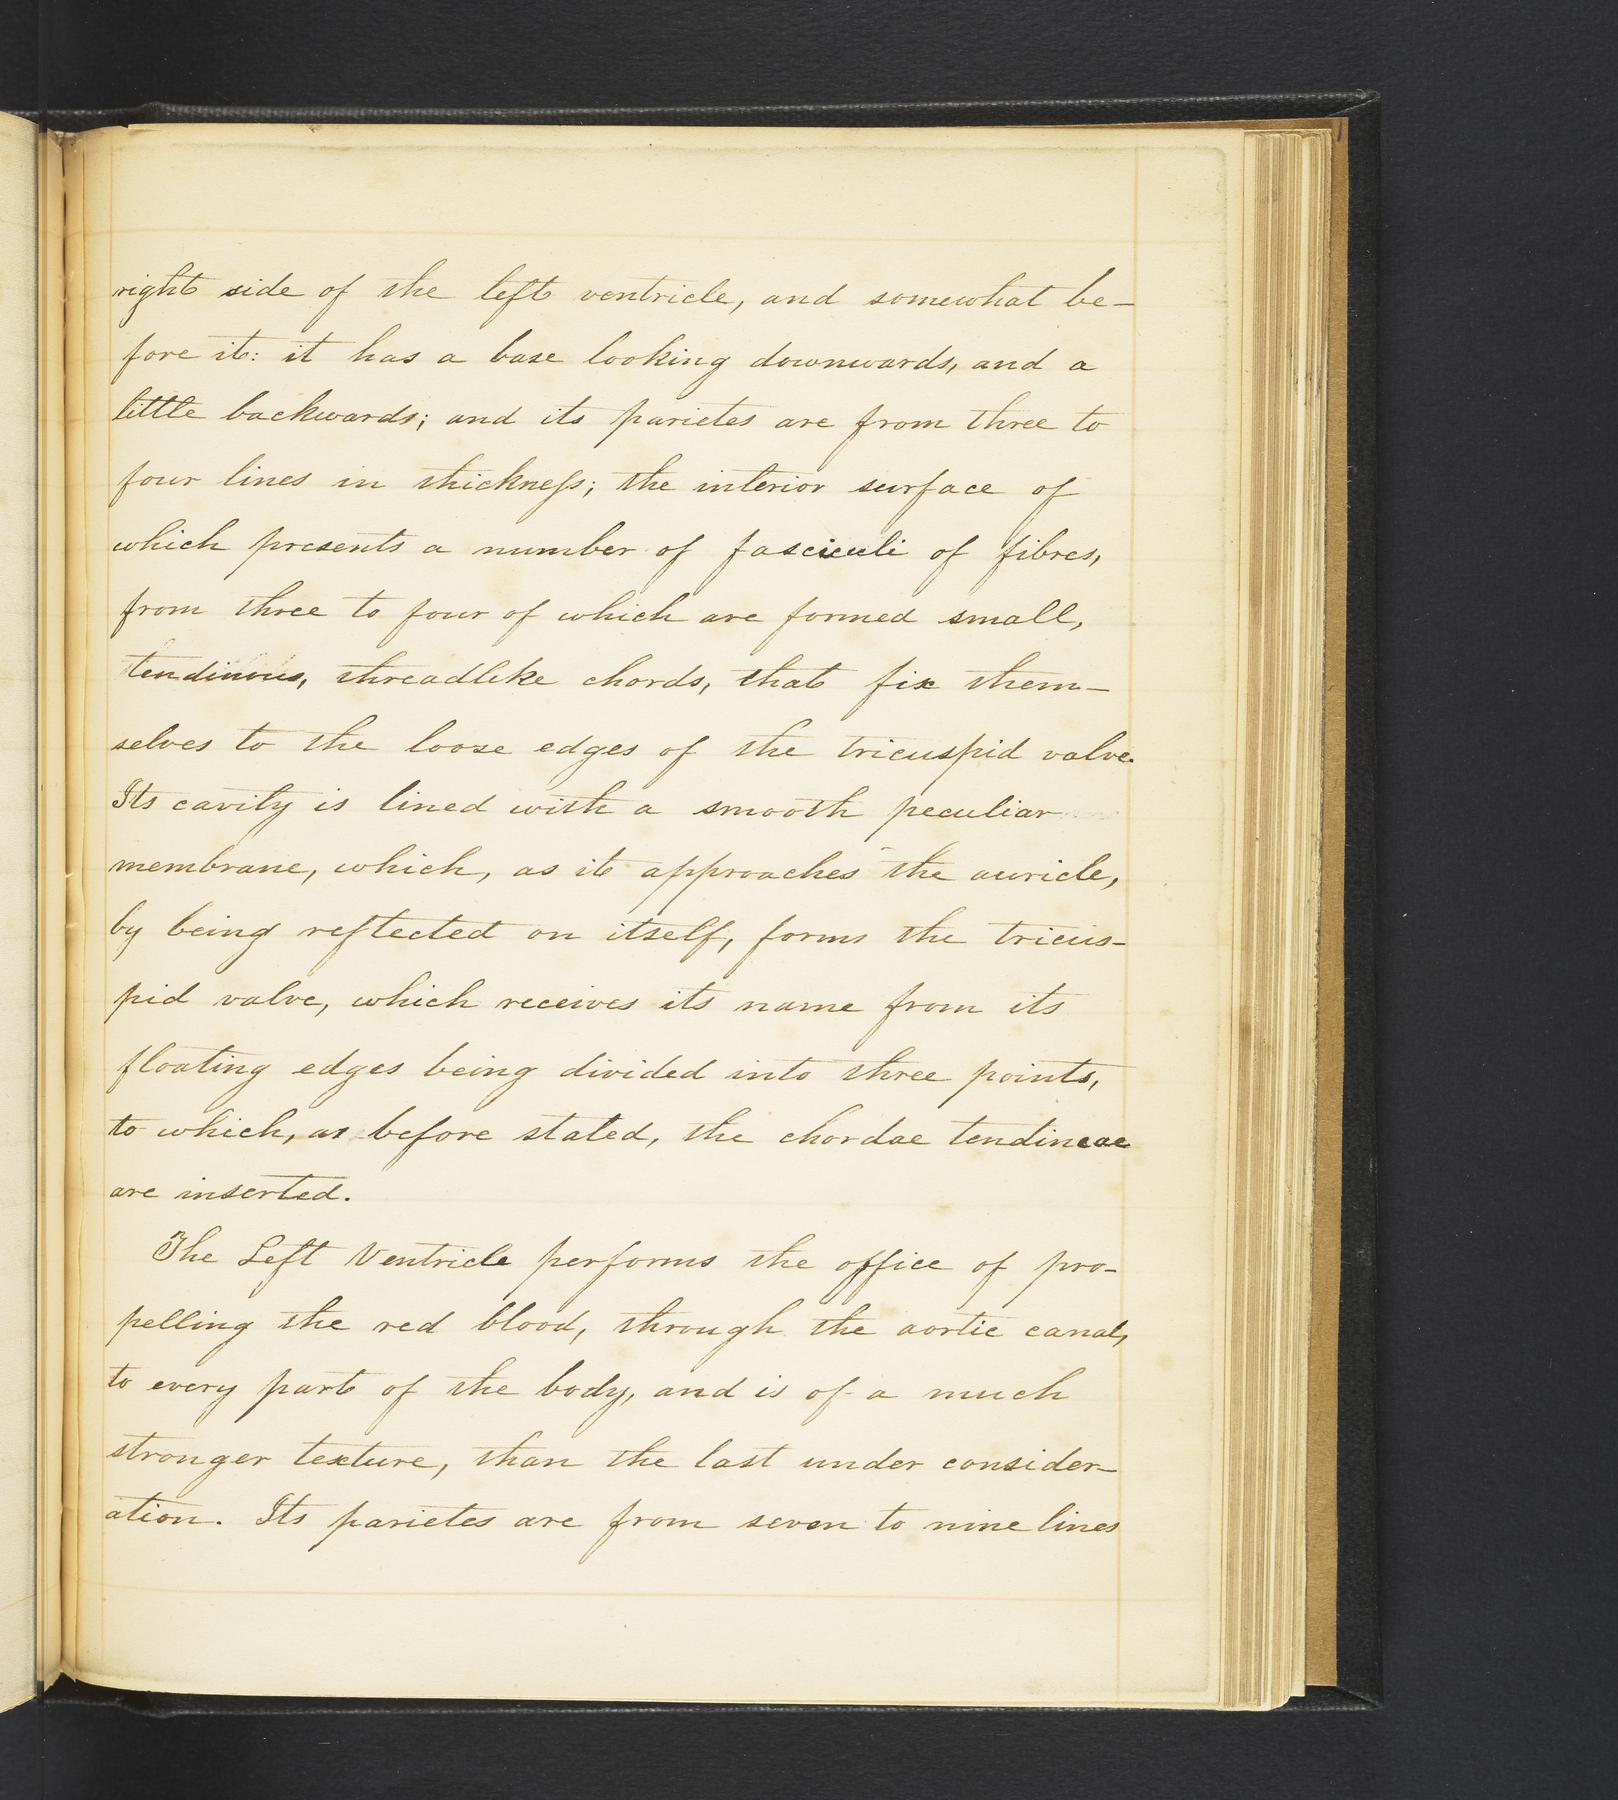 right side of the left ventricle, and somewhat be-
fore it: it has a base looking downwards, and a
little backwards; and its parietes are from three to
four lines in thickneſs; the interior surface of
which presents a number of fasciculi of fibres,
from three to four of which are formed small,
tendinous, threadlike chords, that fix them-
selves to the loose edges of the tricuspid valve.
Its cavity is lined with a smooth peculiar
membrane, which, as it approaches the auricle,
by being reflected on itself, forms the tricus-
pid valve, which receives its name from its
floating edges being divided into three points,
to which, as before stated, the chordae tendineae
are inserted.
The Left Ventricle performs the office of pro-
pelling the red blood, through the aortic canal,
to every part of the body, and is of a much
stronger texture, than the last under consider-
ation. Its parietes are from seven to nine lines